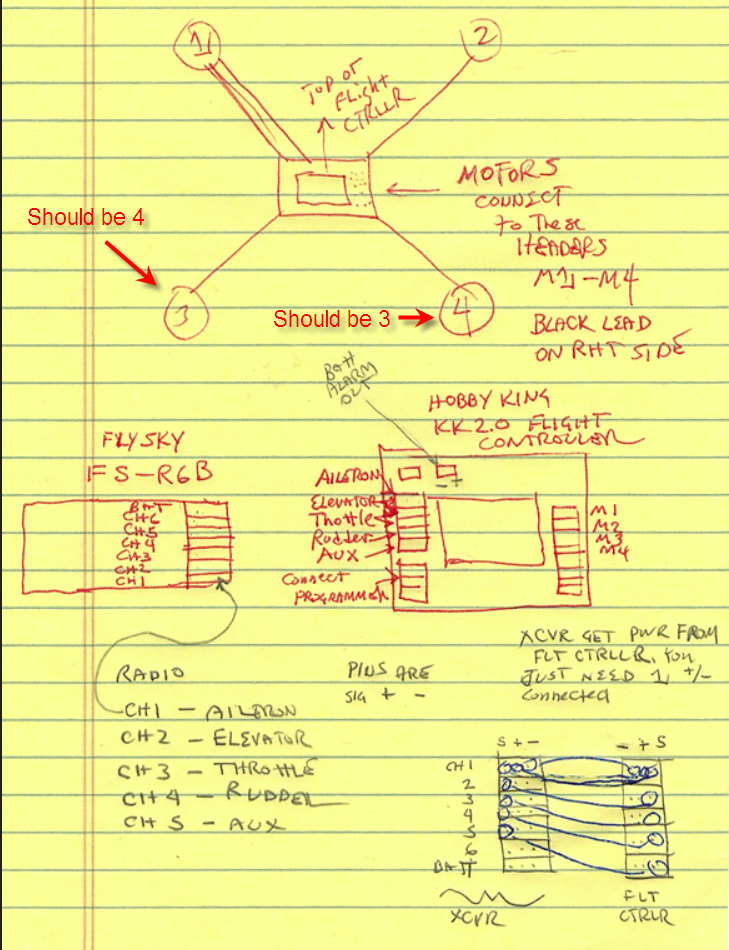 1
2
TOP OF
FLight
CTRLLR
MOTORS
CONNECT
To These
HEADERS
M1-M4
BLACK LEAD
ON RHT SIDE
Should be 4
3
Should be 3
4
BATT
ALARM
OUT
HOBBY KING
KK2.0 FLIGHT
CONTROLLER
FLYSKY
FS-R6B
AILERON
- +
ELEVATOR
Thottle
Rudder
AUX
Connect
PROGRAMMER
M1
M2
M3
M4
BAT
CH6
CH5
CH4
CH3
CH2
CH1
XCVR GET PWR FROM
FLT CTRLLR, You
JUST NEED 1 +/-
Connected
RADIO
PINS ARE
SIG + -
CH1 - AILERON
CH2 - ELEVATOR
CH3 - THROTTLE
CH4 - RUDDER
CH5 - AUX
S + -
- + S
CH1
2
3
4
5
6
BATT
XCVR
FLT
CTRLR